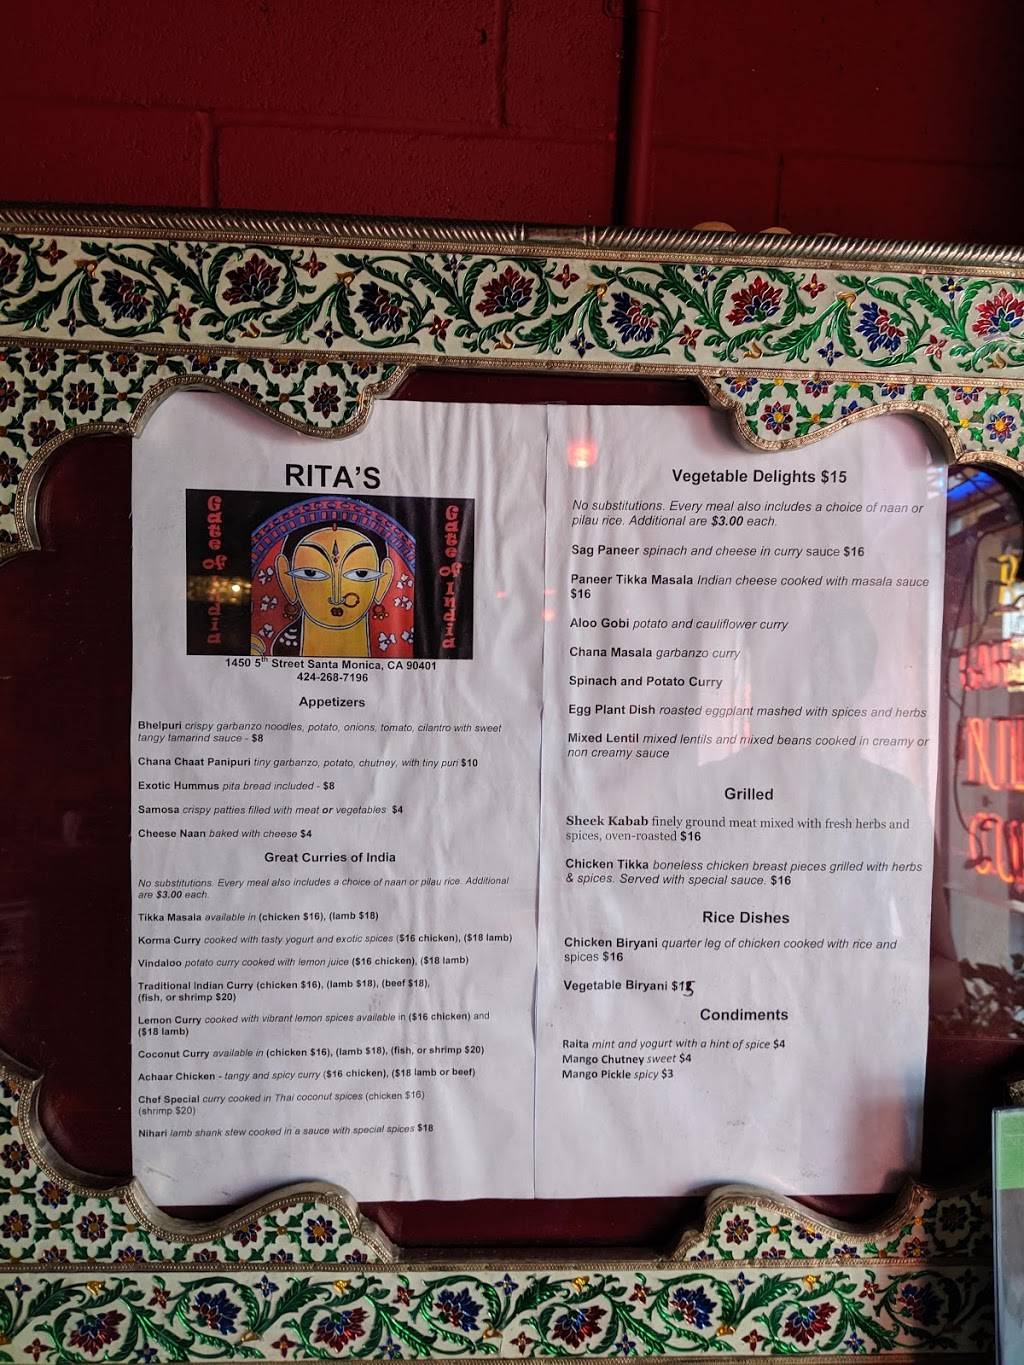 RITA'S
Gate of India
Gate of India
1450 5th Street Santa Monica, CA 90401
424-268-7196
Appetizers
Bhelpuri crispy garbanzo noodles, potato, onions, tomato, cilantro with sweet
tangy tamarind sauce - $8
Chana Chaat Panipuri tiny garbanzo, potato, chutney, with tiny puri $10
Exotic Hummus pita bread included - $8
Samosa crispy patties filled with meat or vegetables $4
Cheese Naan baked with cheese $4
Great Curries of India
No substitutions. Every meal also includes a choice of naan or pilau rice. Additional
are $3.00 each.
Tikka Masala available in (chicken $16), (lamb $18)
Korma Curry cooked with tasty yogurt and exotic spices ($16 chicken), ($18 lamb)
Vindaloo potato curry cooked with lemon juice ($16 chicken), ($18 lamb)
Traditional Indian Curry (chicken $16), (lamb $18), (beef $18),
(fish, or shrimp $20)
Lemon Curry cooked with vibrant lemon spices available in ($16 chicken) and
($18 lamb)
Coconut Curry available in (chicken $16), (lamb $18), (fish, or shrimp $20)
Achaar Chicken - tangy and spicy curry ($16 chicken), ($18 lamb or beef)
Chef Special curry cooked in Thai coconut spices (chicken $16)
(shrimp $20)
Nihari lamb shank stew cooked in a sauce with special spices $18
Vegetable Delights $15
No substitutions. Every meal also includes a choice of naan or
pilau rice. Additional are $3.00 each.
Sag Paneer spinach and cheese in curry sauce $16
Paneer Tikka Masala Indian cheese cooked with masala sauce
$16
Aloo Gobi potato and cauliflower curry
Chana Masala garbanzo curry
Spinach and Potato Curry
Egg Plant Dish roasted eggplant mashed with spices and herbs
Mixed Lentil mixed lentils and mixed beans cooked in creamy or
non creamy sauce
Grilled
Sheek Kabab finely ground meat mixed with fresh herbs and
spices, oven-roasted $16
Chicken Tikka boneless chicken breast pieces grilled with herbs
& spices. Served with special sauce. $16
Rice Dishes
Chicken Biryani quarter leg of chicken cooked with rice and
spices $16
Vegetable Biryani $15
Condiments
Raita mint and yogurt with a hint of spice $4
Mango Chutney sweet $4
Mango Pickle spicy $3